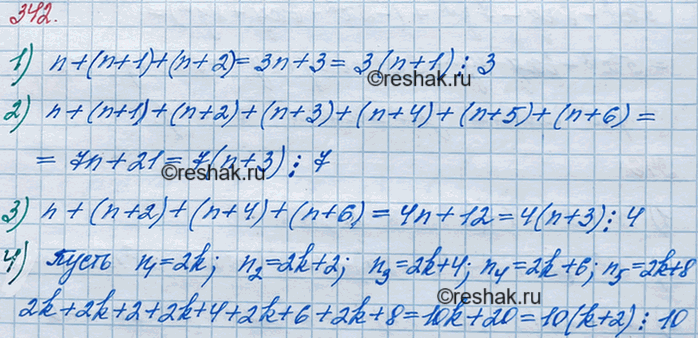 342.
1) n+(n+1)+(n+2)=3n+3=3(n+1)⋮3
©reshak.ru
2) n+(n+1)+(n+2)+(n+3)+(n+4)+(n+5)+(n+6)=
=7n+21=7(n+3)⋮7
©reshak.ru
3) n+(n+2)+(n+4)+(n+6)=4n+12=4(n+3)⋮4
4) Пусть n₁=2k; n₂=2k+2; n₃=2k+4; n₄=2k+6; n₅=2k+8
©reshak.ru
2k+2k+2+2k+4+2k+6+2k+8=10k+20=10(k+2)⋮10